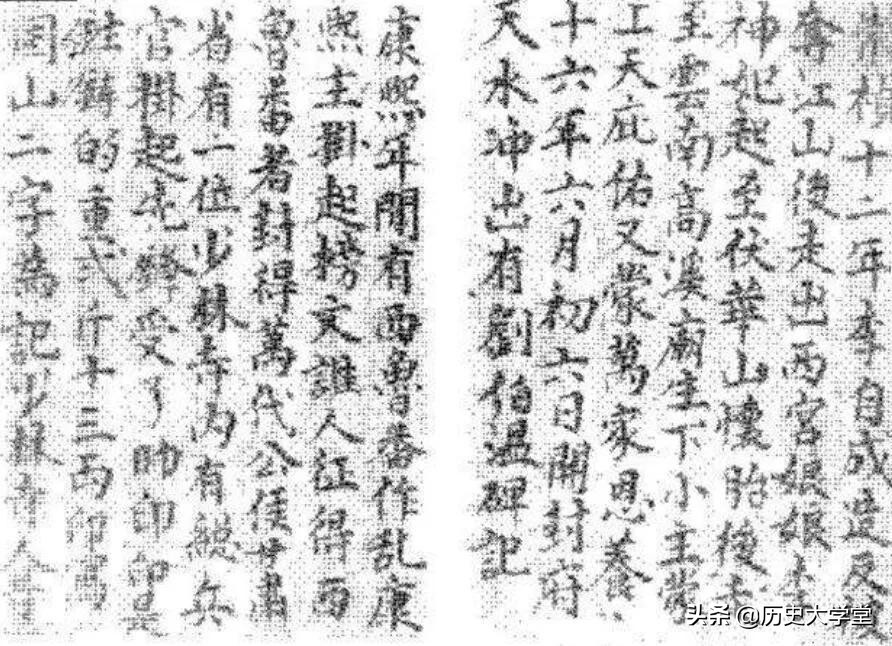 禎十二年李自成造反
奪江山後走出西宮娘娘李
神妃起至伏華山懷胎後走
至雲南高溪廟生下小主蒙
上天庇佑又蒙萬家恩養
十六年六月初六日開封府
天水冲出有劉伯温碑記
康熙年間有西魯番作乱康
熙主劄起榜文誰人征得西
魯番者封得萬代公侯甘肅
省有一位少林寺内有總兵
官掛起先鋒受了帥印印是
鉄鑄的重弍斤十三両印寫
囯山二字為記少林寺
头条 @历史大学堂